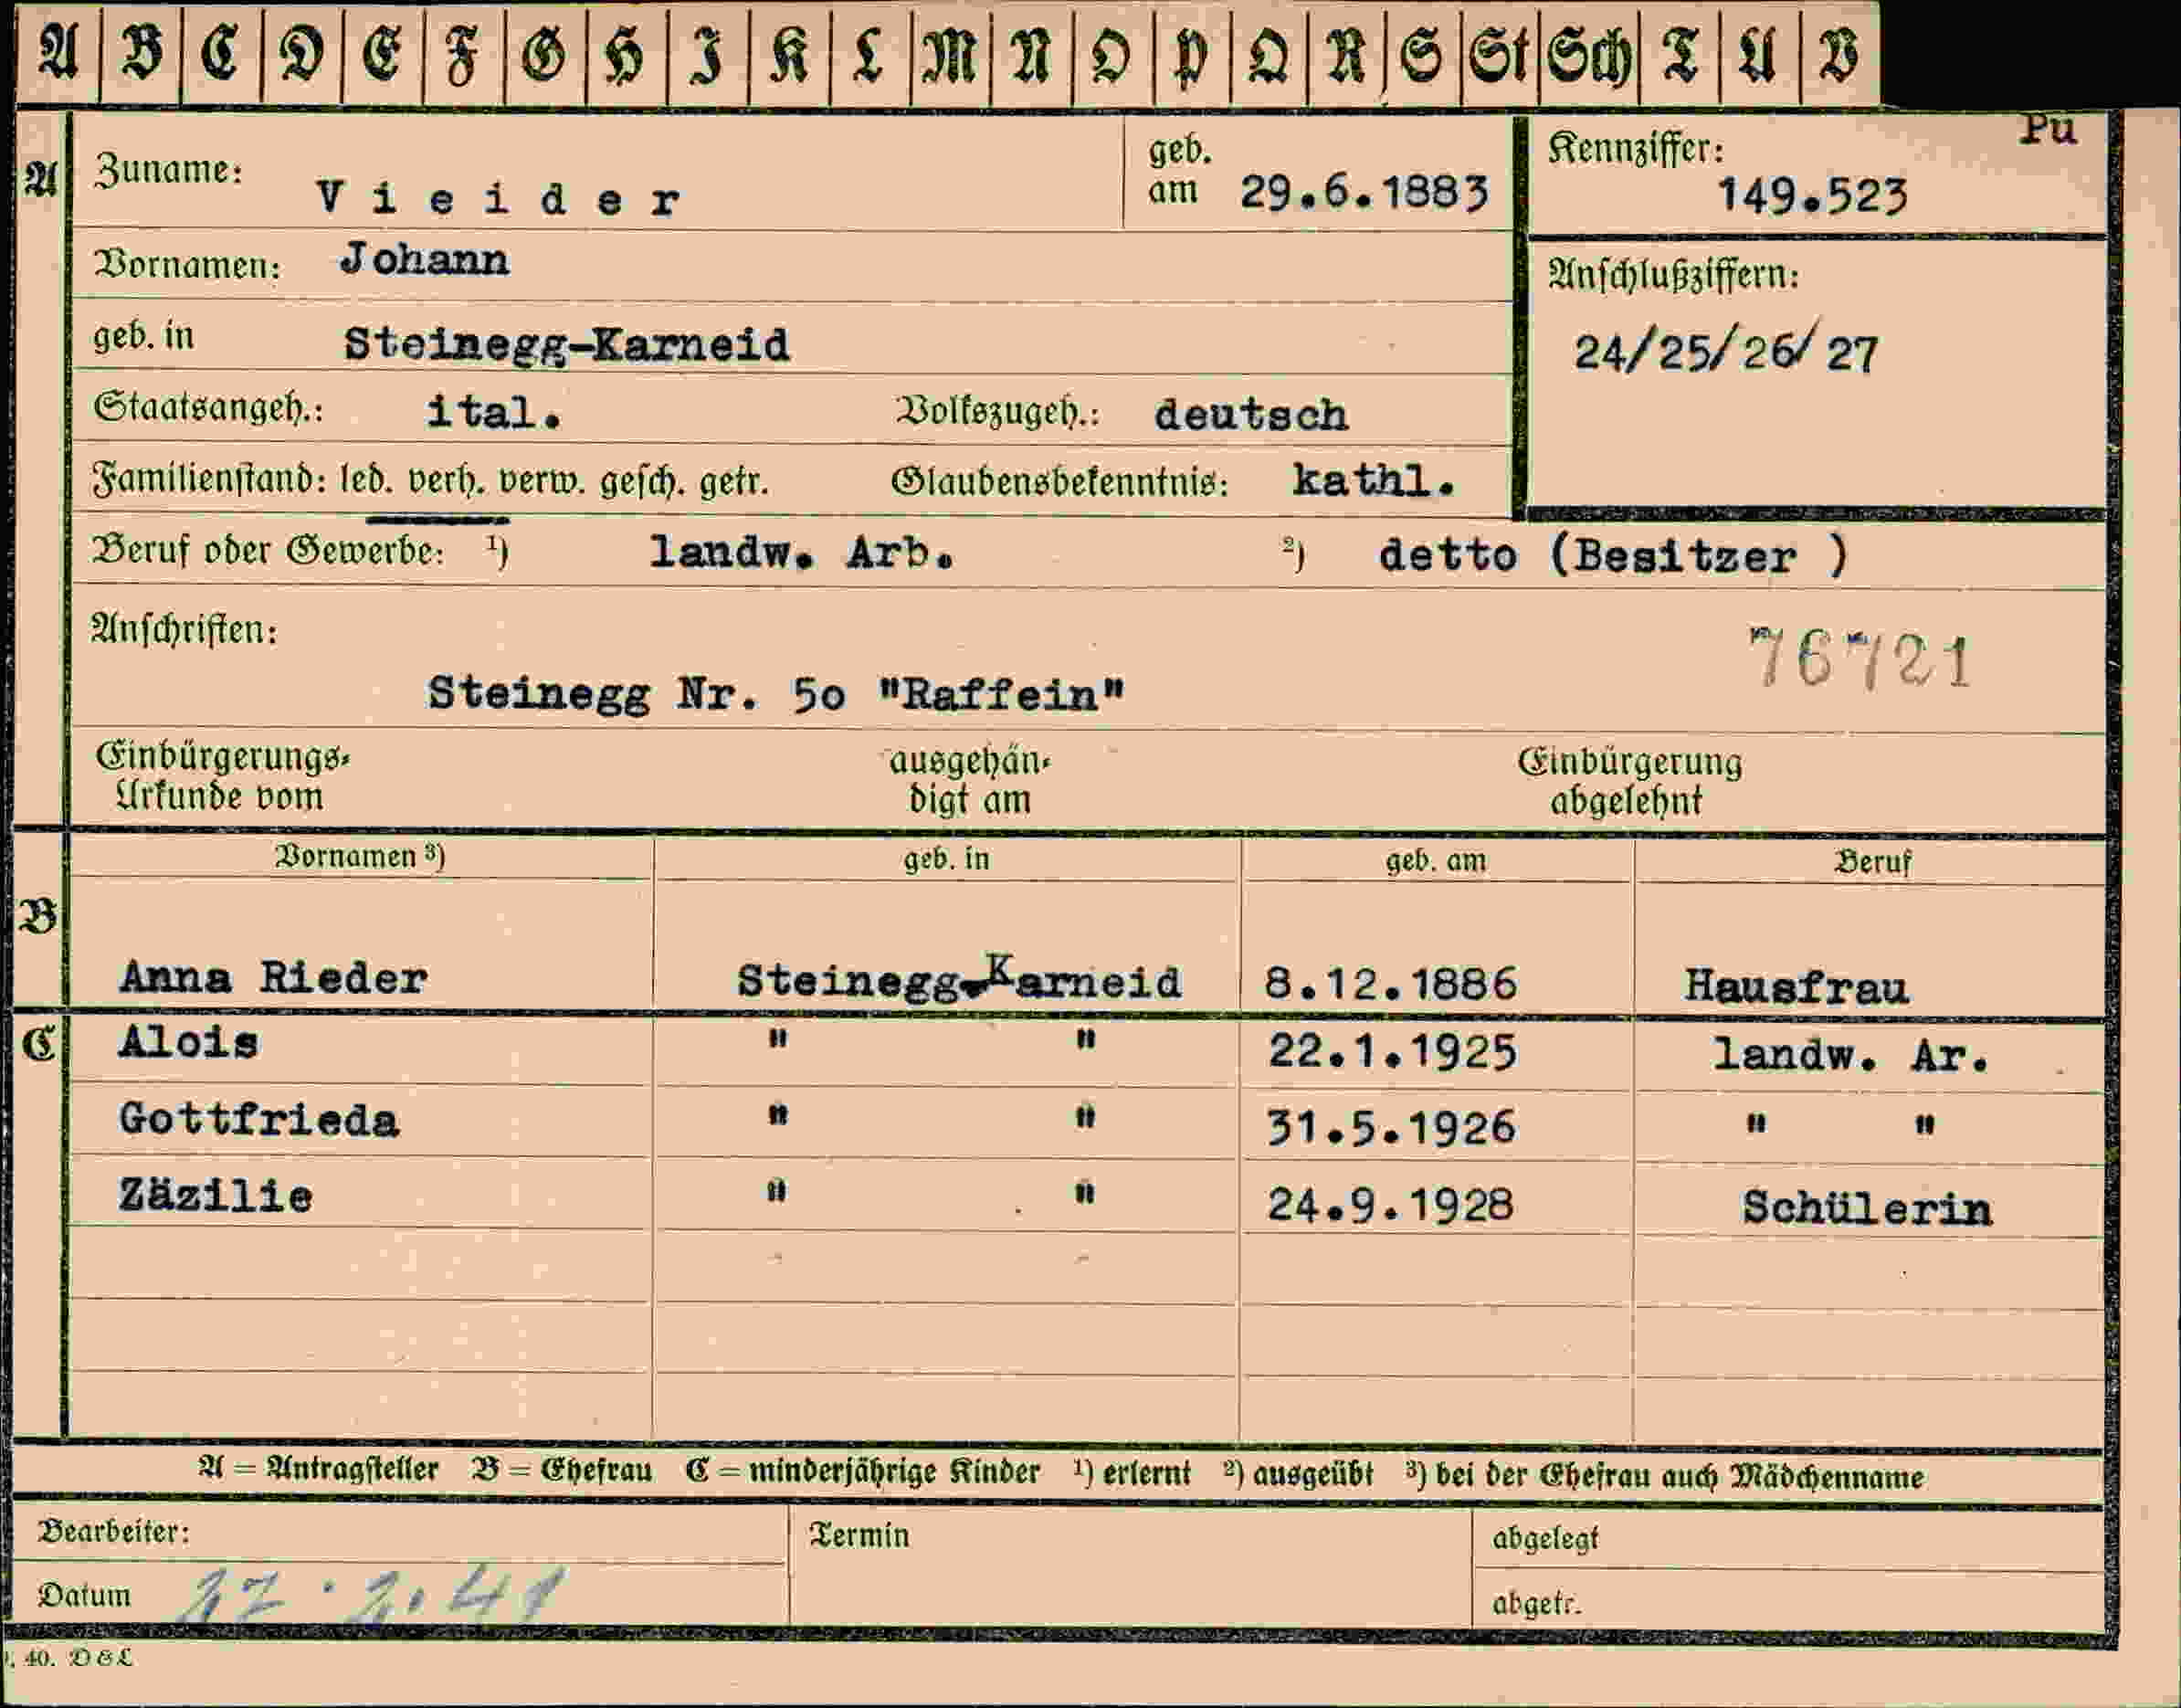 A B C D E F G H I K L M N O P Q R S St Sch T U V
Pu
A
Zuname: Vieider geb. am 29.6.1883
Kennziffer: 149.523
Vornamen: Johann
Anschlußziffern:
24/25/26/27
geb. in Steinegg-Karneid
Staatsangeh.: ital. Volkszugeh.: deutsch
Familienstand: led. verh. verw. gesch. getr. Glaubensbekenntnis: kathl.
Beruf oder Gewerbe: ¹) landw. Arb. ²) detto (Besitzer )
Anschriften:
76721
Steinegg Nr. 5o "Raffein"
Einbürgerungs- ausgehän- Einbürgerung
Urkunde vom digt am abgelehnt
Vornamen ³) geb. in geb. am Beruf
B
Anna Rieder Steinegg-Karneid 8.12.1886 Hausfrau
C Alois " " 22.1.1925 landw. Ar.
Gottfrieda " " 31.5.1926 " "
Zäzilie " " 24.9.1928 Schülerin
A = Antragsteller B = Ehefrau C = minderjährige Kinder ¹) erlernt ²) ausgeübt ³) bei der Ehefrau auch Mädchenname
Bearbeiter: Termin abgelegt
Datum 27.2.41 abgetr.
40. D&L